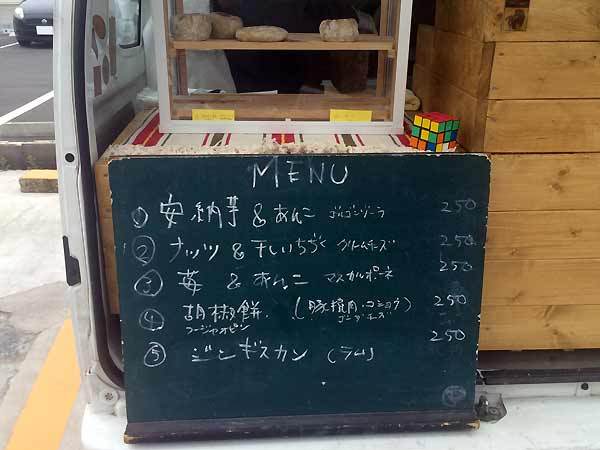 MENU
① 安納芋 & あんこ ゴルゴンゾーラ 250
② ナッツ & 干しいちぢく クリームチーズ 250
③ 苺 & あんこ マスカルポーネ 250
④ 胡椒餅 (豚挽肉・コショウ 250
フージャオビン ゴーダチーズ)
⑤ ジンギスカン (ラム) 250